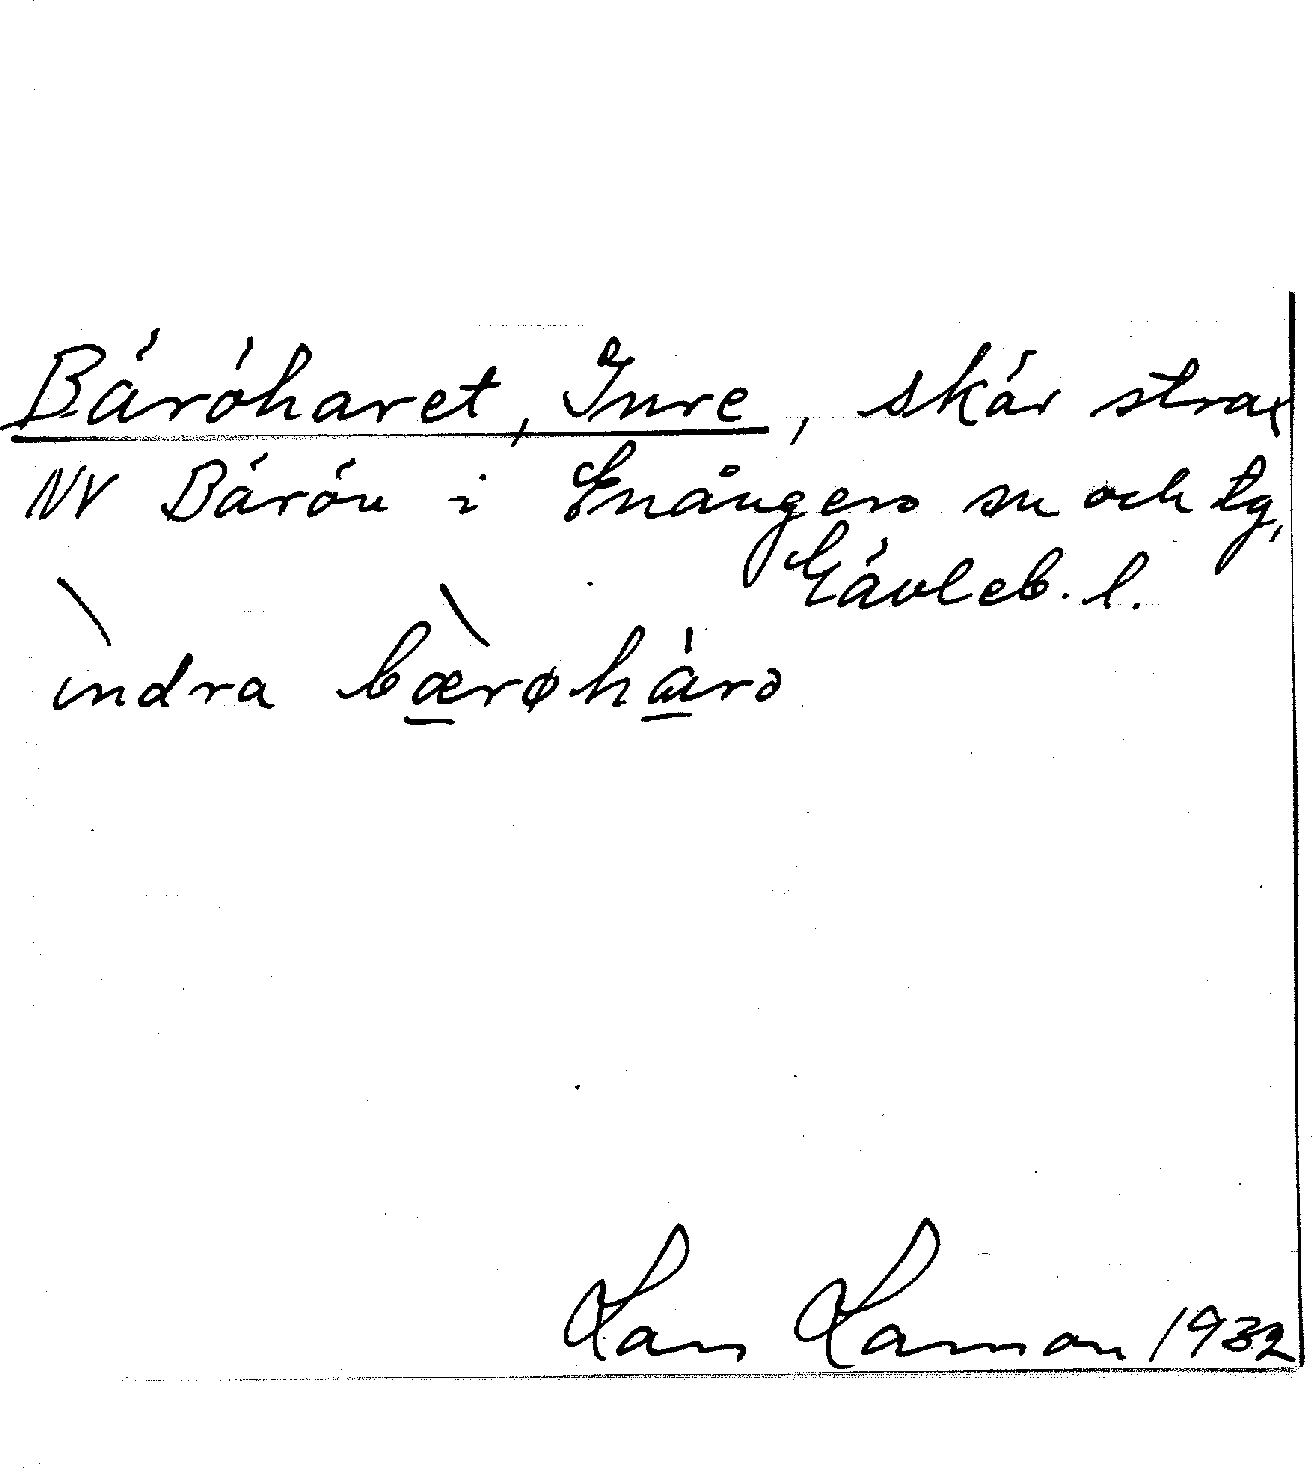 Båröharet, Inre, skär strax
NV Bårön i Enångers sn och tg,
Gävleb. l.
ìndra bæ̀røhárə
Lars Larsson 1932